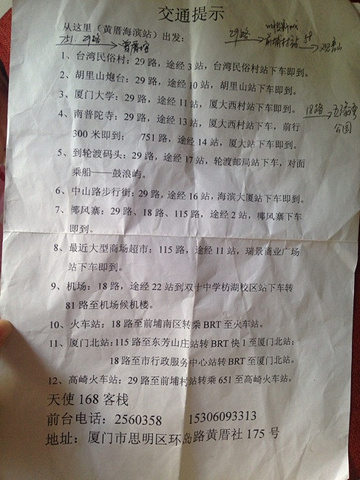 交通提示
从这里（黄厝海滨站）出发：
751. 29路
29路
18路
公园
1、台湾民俗村：29路，途经3站，台湾民俗村站下车即到。
2、胡里山炮台：29路，途经10站，胡里山站下车即到。
3、厦门大学：29路，途经11站，厦大西村站下车即到。
4、南普陀寺：29路，途经13站，厦大西村站下车，前行
300米即到：  751路，途经14站，厦大站下车即到。
5、到轮渡码头：29路，途经17站，轮渡邮局站下车，对面
乘船——鼓浪屿。
6、中山路步行街：29路，途经16站，海滨大厦站下车即到。
7、椰风寨：29路、18路、115路，途经2站，椰风寨下车
即到。
8、最近大型商场超市：115路，途经11站，瑞景商业广场
站下车即到。
9、机场：18路，途经22站到双十中学枋湖校区站下车转
81路至机场候机楼。
10、火车站：18路至前埔南区转乘BRT至火车站。
11、厦门北站：115路至东芳山庄站转BRT快1至厦门北站；
18路至市行政服务中心站转BRT至厦门北站。
12、高崎火车站：29路至前埔村站转乘651至高崎火车站。
天使168客栈
前台电话：2560358  15306093313
地址：厦门市思明区环岛路黄厝社175号